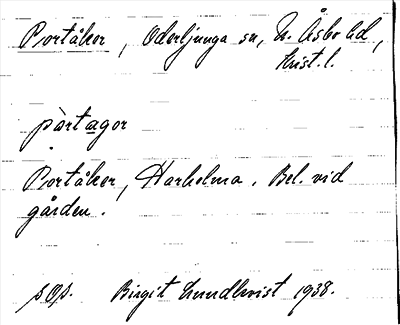 Portåker, Oderljunga sn, N. Åsbo hd,
Krist. l.
pàrtagor
Portåker, Harholma. Bel. vid
gården.
s Op. Birgit Lundkvist 1938.